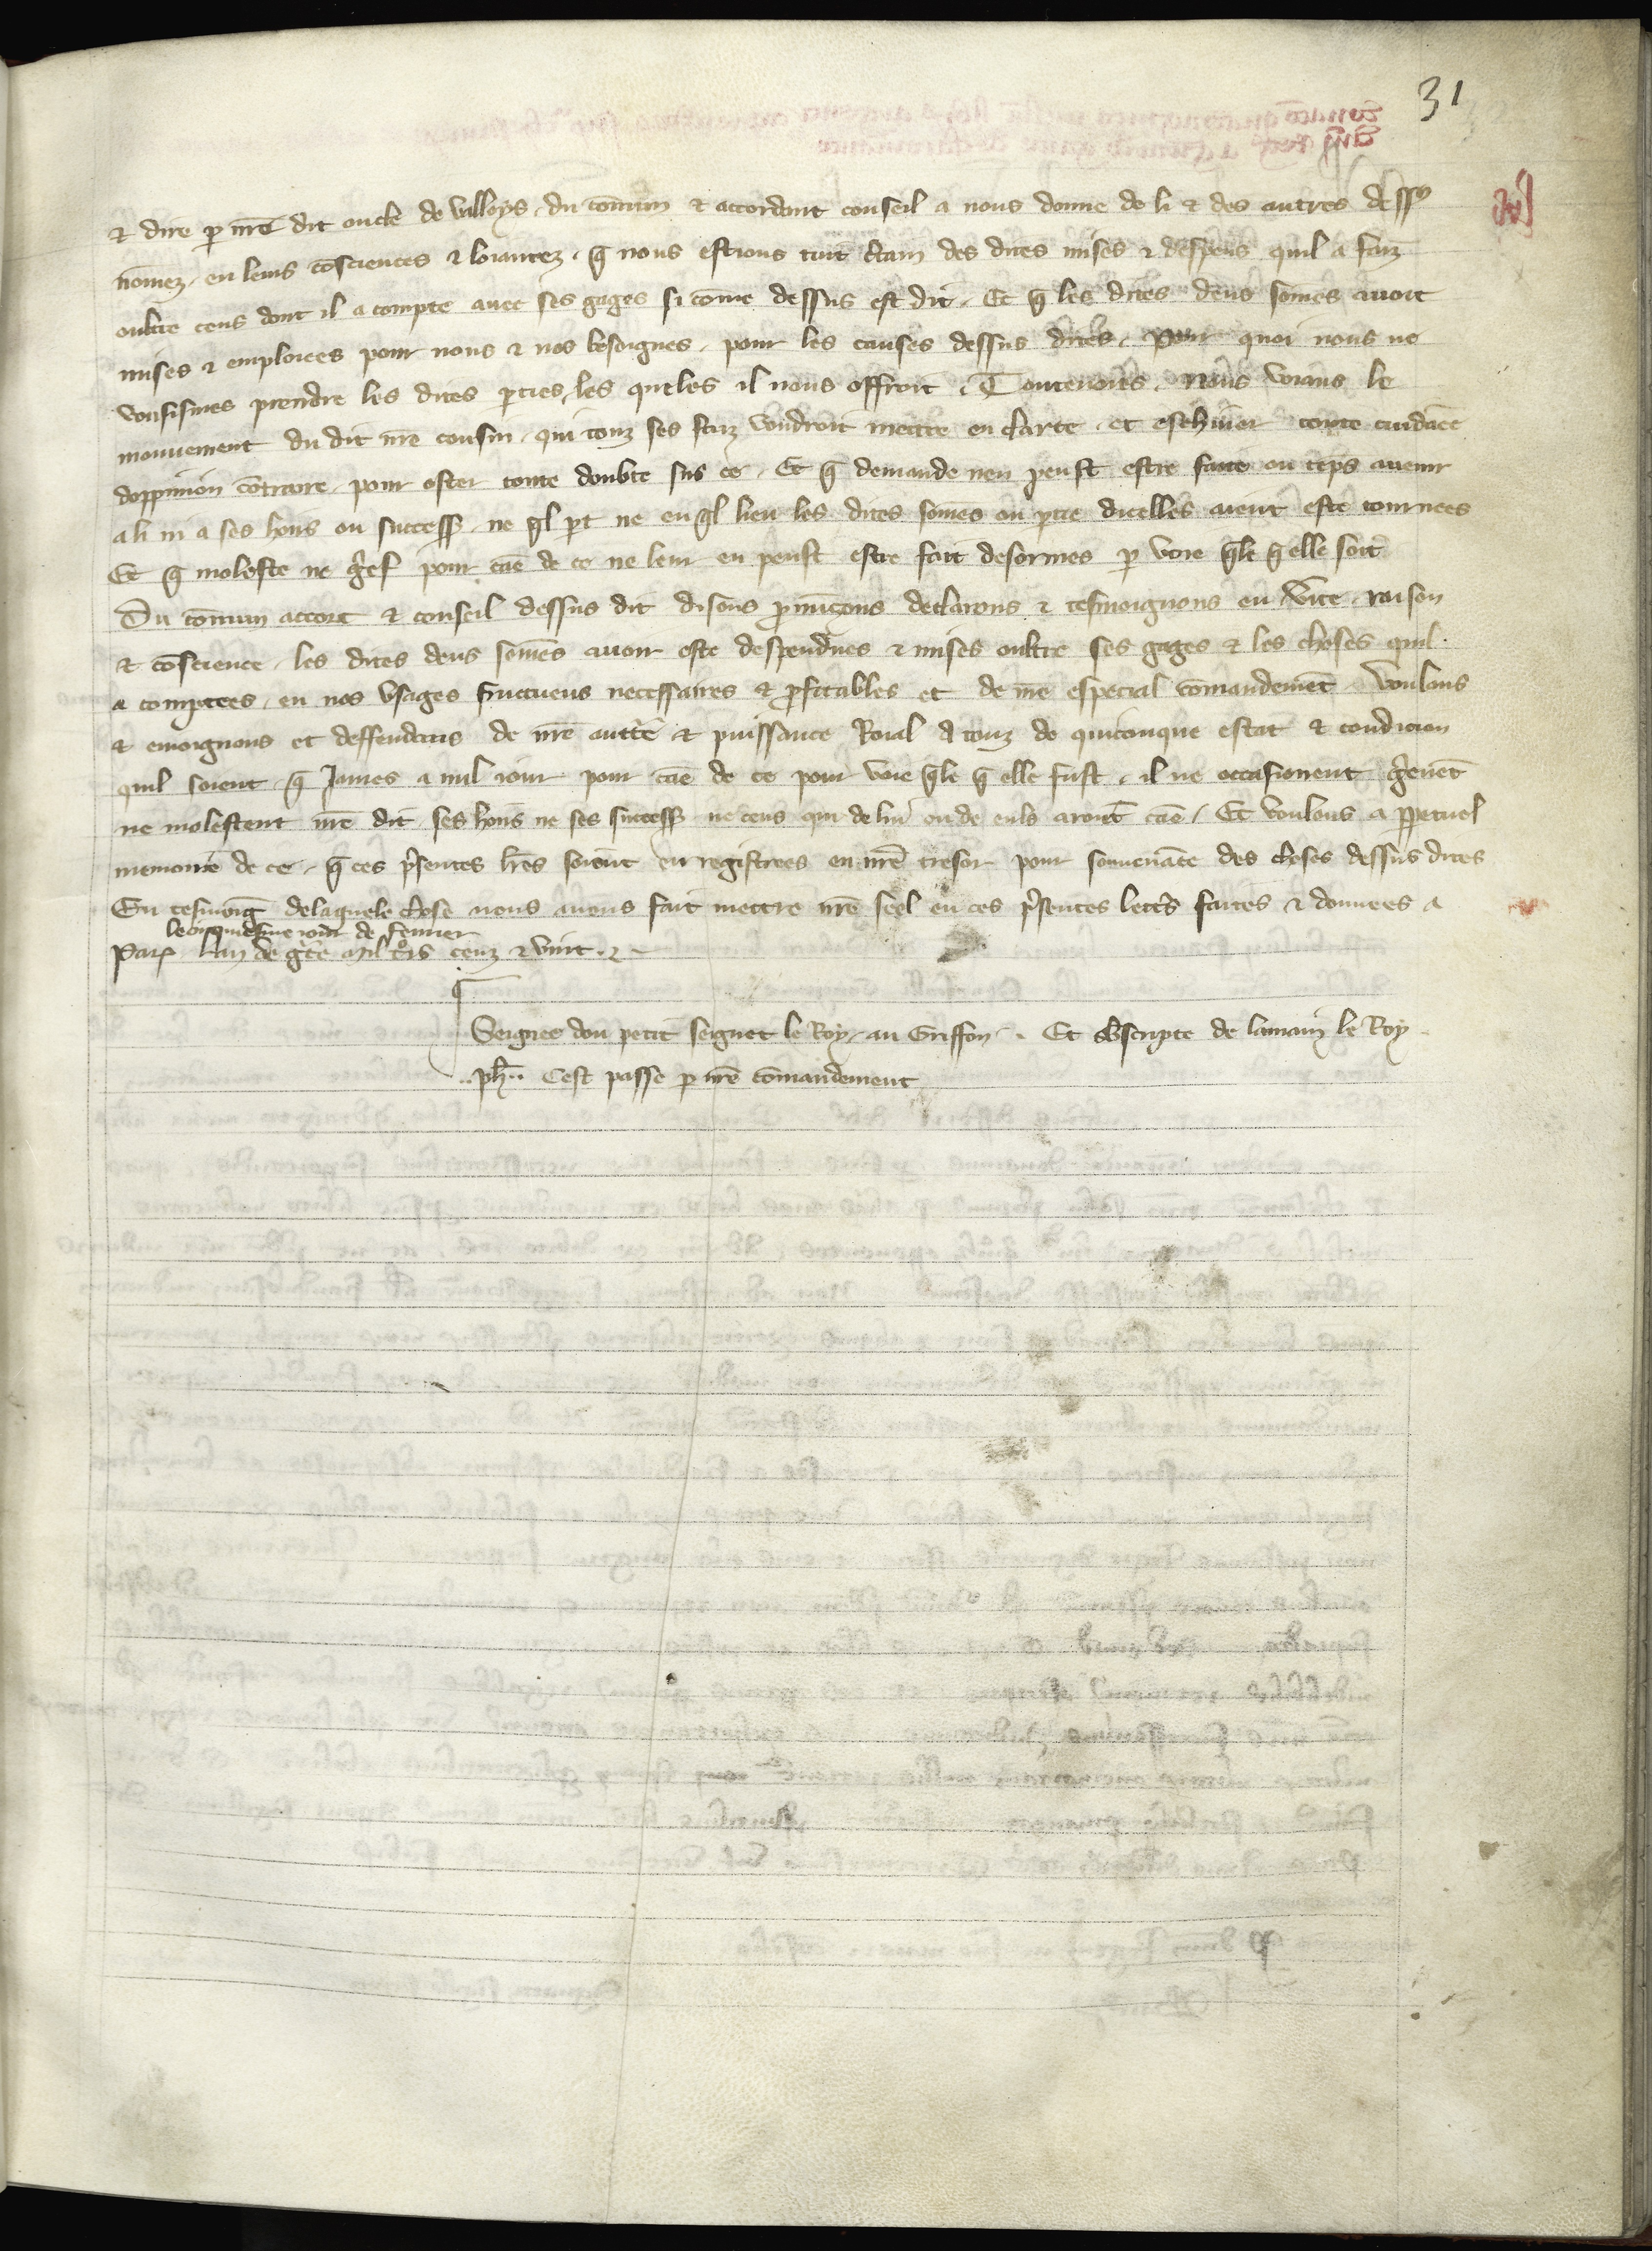 31
& dire p nr̄e dit oncle de Valloys, du cōmun & accordant conseil a nous donne de li & des autres dess9
nōmez, en leurs cōsciences & loiautez, q̄ nous estions tuit clain des dites mises & despens quil a faiz
oultre ceus dont il a compte auec ses gages si cōme dessus est dit. Et q̄ les dites deus sōmes auoit
mises & emploiees pour nous & nos besoignes, pour les causes dessus dites. Pour quoi nous ne
vousismes prendre les dites pties, les queles il nous offroit. Toutenoies, nous voians le
mouuement du dit nr̄e cousin, qui touz ses faiz voudroit mettre en clarte, et eschiuer toute cuidāce
doppinion cōtraire, pour oster toute doubte sus ce. Et q̄ demande nen peust estre faite ou tēps auenir
a li ni a ses hoirs ou success, ne q̄l pt ne en q̄l lieu les dites sōmes ou ptie dicelles aient este tournees
Et q̄ moleste ne gref pour cāe de ce ne leur en peust estre fait desormes p voie q̄le q̄ elle soit
Du cōmun accort & conseil dessus dit disons pronūçons declarons & tesmoignons en vite, raison
& cōscience, les dites deus sōmes auoir este despendues & mises oultre ses gages & les choses quil
a comptees, en nos vsages fructueus necessaires & pfitables et de nr̄e especial cōmandemēt Voulons
& enioignons et deffendons de nr̄e auttē & puissance Roial a touz de quiconque estat & condicion
quil soient, q̄ Iames a nul iour pour cāe de ce pour voie q̄le q̄ elle fust, il ne occasionent greuēt
ne molestent nr̄e dit, ses hoirs ne ses success ne ceus qui de lui ou de euls aront cāe. Et voulons a ppetuel
memoire de ce, q̄ ces psentes lr̄es soient en registrees en nr̄e tresor pour souuenāce des choses dessus dites
En tesmoīg delaquele chose nous auons fait mettre nr̄e seel en ces psentes lettres faites & donnees a
le cinquiesme iour de feurier
Par̄ lan de grace mil trois cenz & vint.
Seignes dou petit seignet le Roy, au Griffon. Et sbscripte de lamain le Roy
..ph.. Cest passe p nr̄e cōmandement